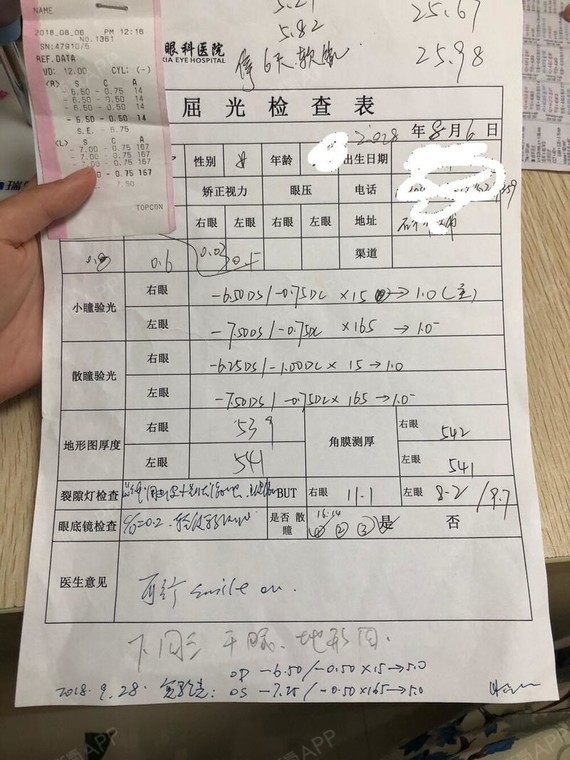 NAME
2018.08.06 PM 12:16
No.1381
SN:4791075
REF.DATA
VD: 12.00 CYL: (-)
<R> S C A
- 6.50 - 0.75 14
- 6.50 - 0.50 14
- 6.50 - 0.50 14
- 6.50 - 0.50 14
S.E. - 6.75
<L> S C A
- 7.00 - 0.75 167
- 7.00
- 0.75 167
- 7.50
TOPCON
5.82
25.67
25.98
停6天软镜
眼科医院
XIA EYE HOSPITAL
屈光检查表
年8月6日
性别 女 年龄 出生日期
矫正视力 眼压 电话
右眼 左眼 右眼 左眼 地址
0.6 渠道
小瞳验光 右眼 -6.50DS/-0.75DC×15→1.0(主)
左眼 -7.50DS/-0.75DC ×165 →1.0-
散瞳验光 右眼 -6.25DS/-1.00DC×15→1.0
左眼 -7.50DS/-0.75DC×165→1.0-
地形图厚度 右眼 539 角膜测厚 右眼 542
左眼 541 左眼 541
裂隙灯检查 BUT 右眼 11.1 左眼 8.2/9.7
眼底镜检查 C/D=0.2 是否散瞳 16:54 ① ② ③ 是 否
医生意见 可行smile ou.
下周三 干眼、地形图.
OD -6.50/-0.50×15→5.0
2018.9.28. 复验光: OS -7.25/-0.50×165→5.0
APP